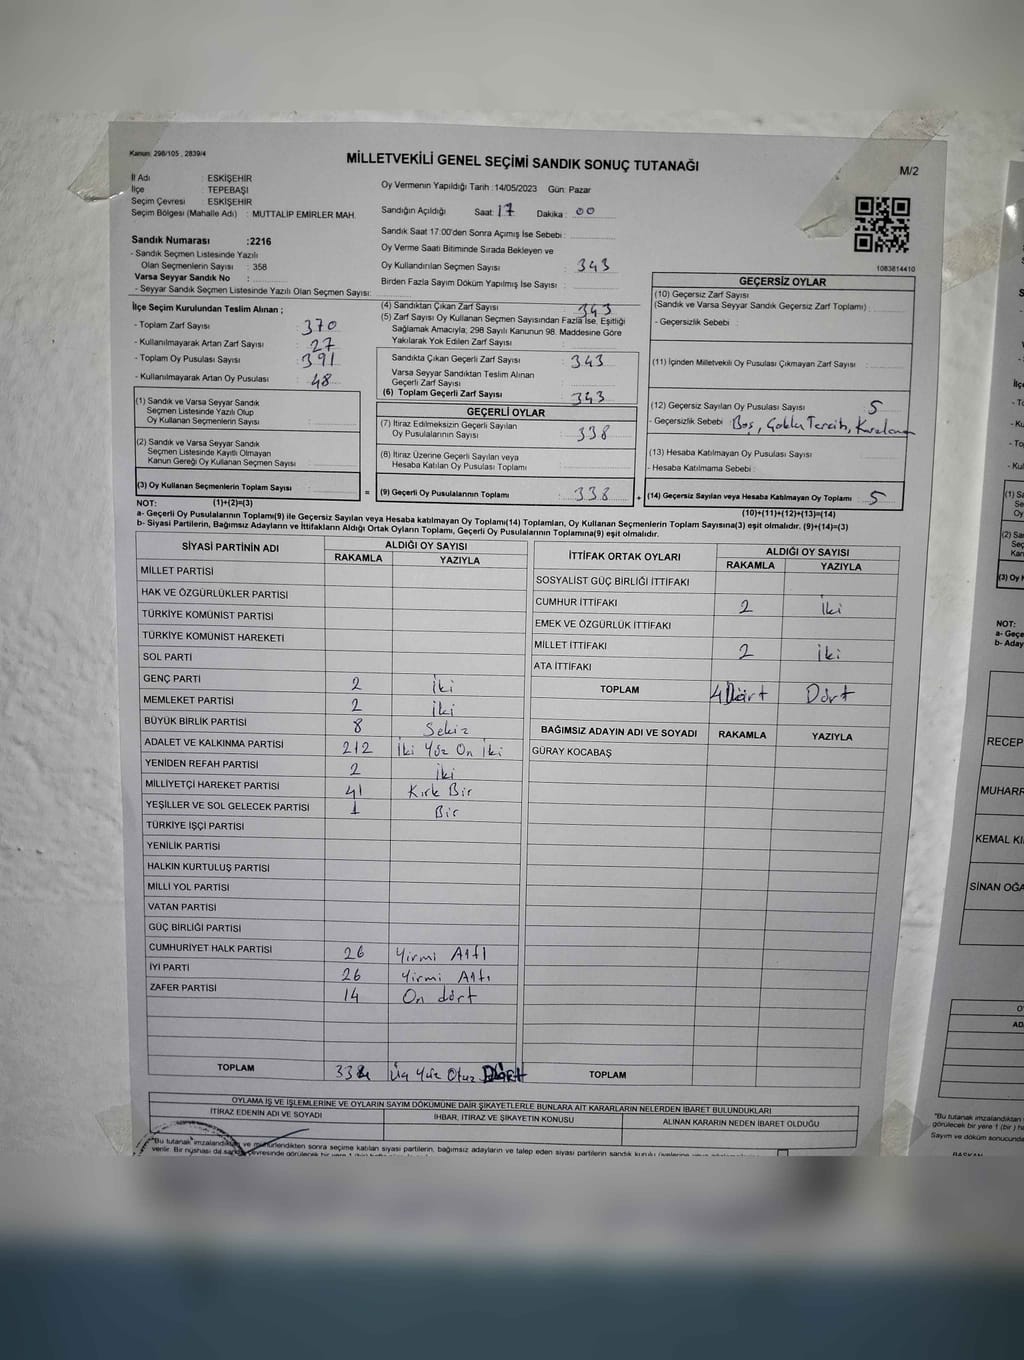 Kanun: 298/105 , 2839/4
MİLLETVEKİLİ GENEL SEÇİMİ SANDIK SONUÇ TUTANAĞI
M/2
İl Adı : ESKİŞEHİR
İlçe : TEPEBAŞI
Seçim Çevresi : ESKİŞEHİR
Seçim Bölgesi (Mahalle Adı) : MUTTALIP EMIRLER MAH.
Oy Vermenin Yapıldığı Tarih : 14/05/2023 Gün: Pazar
Sandığın Açıldığı Saat: 17 Dakika : 00
Sandık Saat 17:00'den Sonra Açımış İse Sebebi :
Oy Verme Saati Bitiminde Sırada Bekleyen ve
Oy Kullandırılan Seçmen Sayısı : 343
Birden Fazla Sayım Döküm Yapılmış İse Sayısı :
1083814410
Sandık Numarası :2216
- Sandık Seçmen Listesinde Yazılı
Olan Seçmenlerin Sayısı : 358
Varsa Seyyar Sandık No :
- Seyyar Sandık Seçmen Listesinde Yazılı Olan Seçmen Sayısı:
İlçe Seçim Kurulundan Teslim Alınan ;
- Toplam Zarf Sayısı : 370
- Kullanılmayarak Artan Zarf Sayısı : 27
- Toplam Oy Pusulası Sayısı : 391
- Kullanılmayarak Artan Oy Pusulası : 48
(1) Sandık ve Varsa Seyyar Sandık
Seçmen Listesinde Yazılı Olup
Oy Kullanan Seçmenlerin Sayısı :
(2) Sandık ve Varsa Seyyar Sandık
Seçmen Listesinde Kayıtlı Olmayan
Kanun Gereği Oy Kullanan Seçmen Sayısı :
(3) Oy Kullanan Seçmenlerin Toplam Sayısı :
(4) Sandıktan Çıkan Zarf Sayısı : 343
(5) Zarf Sayısı Oy Kullanan Seçmen Sayısından Fazla İse, Eşitliği
Sağlamak Amacıyla; 298 Sayılı Kanunun 98. Maddesine Göre
Yakılarak Yok Edilen Zarf Sayısı :
Sandıkta Çıkan Geçerli Zarf Sayısı : 343
Varsa Seyyar Sandıktan Teslim Alınan
Geçerli Zarf Sayısı :
(6) Toplam Geçerli Zarf Sayısı : 343
GEÇERLİ OYLAR
(7) İtiraz Edilmeksizin Geçerli Sayılan
Oy Pusulalarının Sayısı : 338
(8) İtiraz Üzerine Geçerli Sayılan veya
Hesaba Katılan Oy Pusulası Toplamı :
= (9) Geçerli Oy Pusulalarının Toplamı : 338 +
GEÇERSİZ OYLAR
(10) Geçersiz Zarf Sayısı
(Sandık ve Varsa Seyyar Sandık Geçersiz Zarf Toplamı) :
- Geçersizlik Sebebi :
(11) İçinden Milletvekili Oy Pusulası Çıkmayan Zarf Sayısı :
(12) Geçersiz Sayılan Oy Pusulası Sayısı : 5
- Geçersizlik Sebebi : Boş, Çoklu Tercih, Karalama
(13) Hesaba Katılmayan Oy Pusulası Sayısı :
- Hesaba Katılmama Sebebi :
(14) Geçersiz Sayılan veya Hesaba Katılmayan Oy Toplamı : 5
NOT: (1)+(2)=(3)
(10)+(11)+(12)+(13)=(14)
a- Geçerli Oy Pusulalarının Toplamı(9) ile Geçersiz Sayılan veya Hesaba katılmayan Oy Toplamı(14) Toplamları, Oy Kullanan Seçmenlerin Toplam Sayısına(3) eşit olmalıdır. (9)+(14)=(3)
b- Siyasi Partilerin, Bağımsız Adayların ve İttifakların Aldığı Ortak Oyların Toplamı, Geçerli Oy Pusulalarının Toplamına(9) eşit olmalıdır.
SİYASİ PARTİNİN ADI ALDIĞI OY SAYISI
RAKAMLA YAZIYLA
MİLLET PARTİSİ
HAK VE ÖZGÜRLÜKLER PARTİSİ
TÜRKİYE KOMÜNİST PARTİSİ
TÜRKİYE KOMÜNİST HAREKETİ
SOL PARTİ
GENÇ PARTİ 2 İki
MEMLEKET PARTİSİ 2 İki
BÜYÜK BİRLİK PARTİSİ 8 Sekiz
ADALET VE KALKINMA PARTİSİ 212 İki Yüz On İki
YENİDEN REFAH PARTİSİ 2 İki
MİLLİYETÇİ HAREKET PARTİSİ 41 Kırk Bir
YEŞİLLER VE SOL GELECEK PARTİSİ 1 Bir
TÜRKİYE İŞÇİ PARTİSİ
YENİLİK PARTİSİ
HALKIN KURTULUŞ PARTİSİ
MİLLİ YOL PARTİSİ
VATAN PARTİSİ
GÜÇ BİRLİĞİ PARTİSİ
CUMHURİYET HALK PARTİSİ 26 Yirmi Altı
İYİ PARTİ 26 Yirmi Altı
ZAFER PARTİSİ 14 On dört
TOPLAM 334 Üç Yüz Otuz Dört
İTTİFAK ORTAK OYLARI ALDIĞI OY SAYISI
RAKAMLA YAZIYLA
SOSYALİST GÜÇ BİRLİĞİ İTTİFAKI
CUMHUR İTTİFAKI 2 İki
EMEK VE ÖZGÜRLÜK İTTİFAKI
MİLLET İTTİFAKI 2 İki
ATA İTTİFAKI
TOPLAM 4 Dört Dört
BAĞIMSIZ ADAYIN ADI VE SOYADI RAKAMLA YAZIYLA
GÜRAY KOCABAŞ
TOPLAM
OYLAMA İŞ VE İŞLEMLERİNE VE OYLARIN SAYIM DÖKÜMÜNE DAİR ŞİKAYETLERLE BUNLARA AİT KARARLARIN NELERDEN İBARET BULUNDUKLARI
İTİRAZ EDENİN ADI VE SOYADI İHBAR, İTİRAZ VE ŞİKAYETİN KONUSU ALINAN KARARIN NEDEN İBARET OLDUĞU
"Bu tutanak imzalandıktan ve mühürlendikten sonra seçime katılan siyasi partilerin, bağımsız adayların ve talep eden siyasi partilerin sandık kurulu
NOT:
a- Geçe
b- Aday
RECEP
MUHARR
KEMAL KI
SİNAN OĞA
AD
"Bu tutanak imzalandıktan
görülecek bir yere 1 (bir )
Sayım ve döküm sonucunda